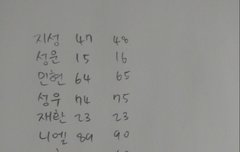 지성 47 48
성운 15 16
민현 64 65
성우 74 75
재환 23 23
니엘 89 90